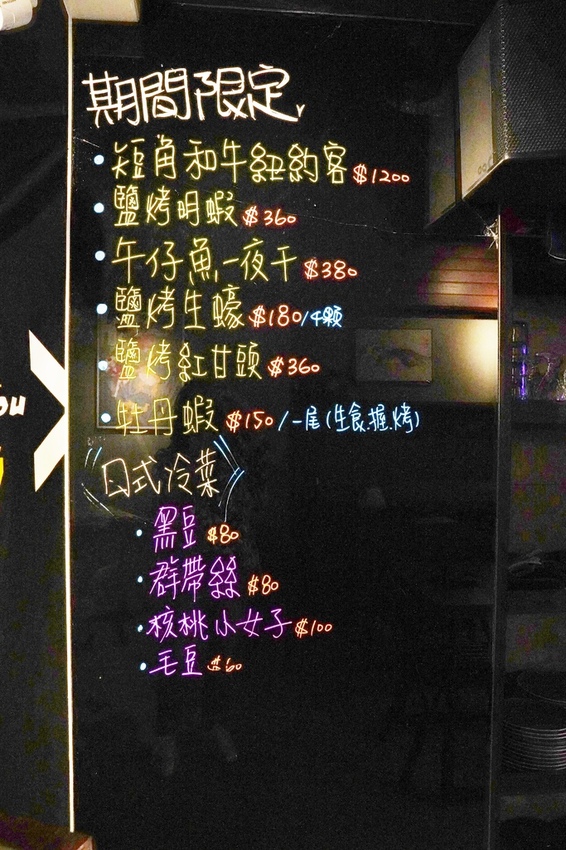 期間限定
•短角和牛紐約客 $1200
•鹽烤明蝦 $360
•午仔魚一夜干 $380
•鹽烤生蠔 $180/4顆
•鹽烤紅甘頭 $360
•牡丹蝦 $150/一尾(生食.握.烤)
日式冷菜
•黑豆 $80
•群帶絲 $80
•核桃小女子 $100
•毛豆 $60
ou